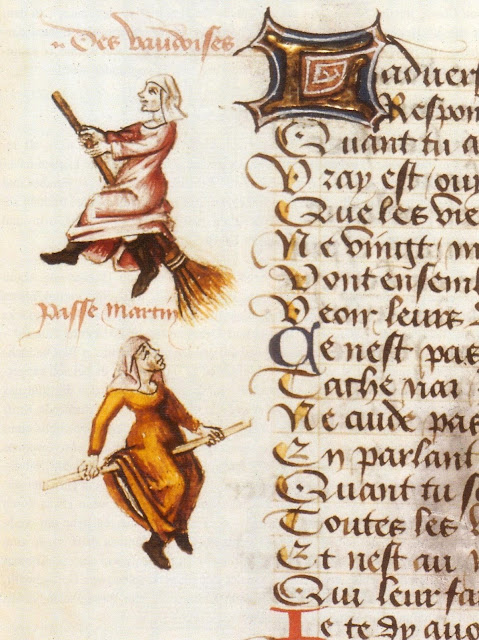 Des vaudoises
passe martin
Ladvers
Respon
Quant tu a
Vray est / ouy
Que les vie
Ne vingt / n
Vont ensembl
Veoir leurs
Ce nest pas
Tache nai
Ne cuide pas
En parlant
Quant tu s
Toutes les
Et nest au
Qui leur fa
Ie te dy auo